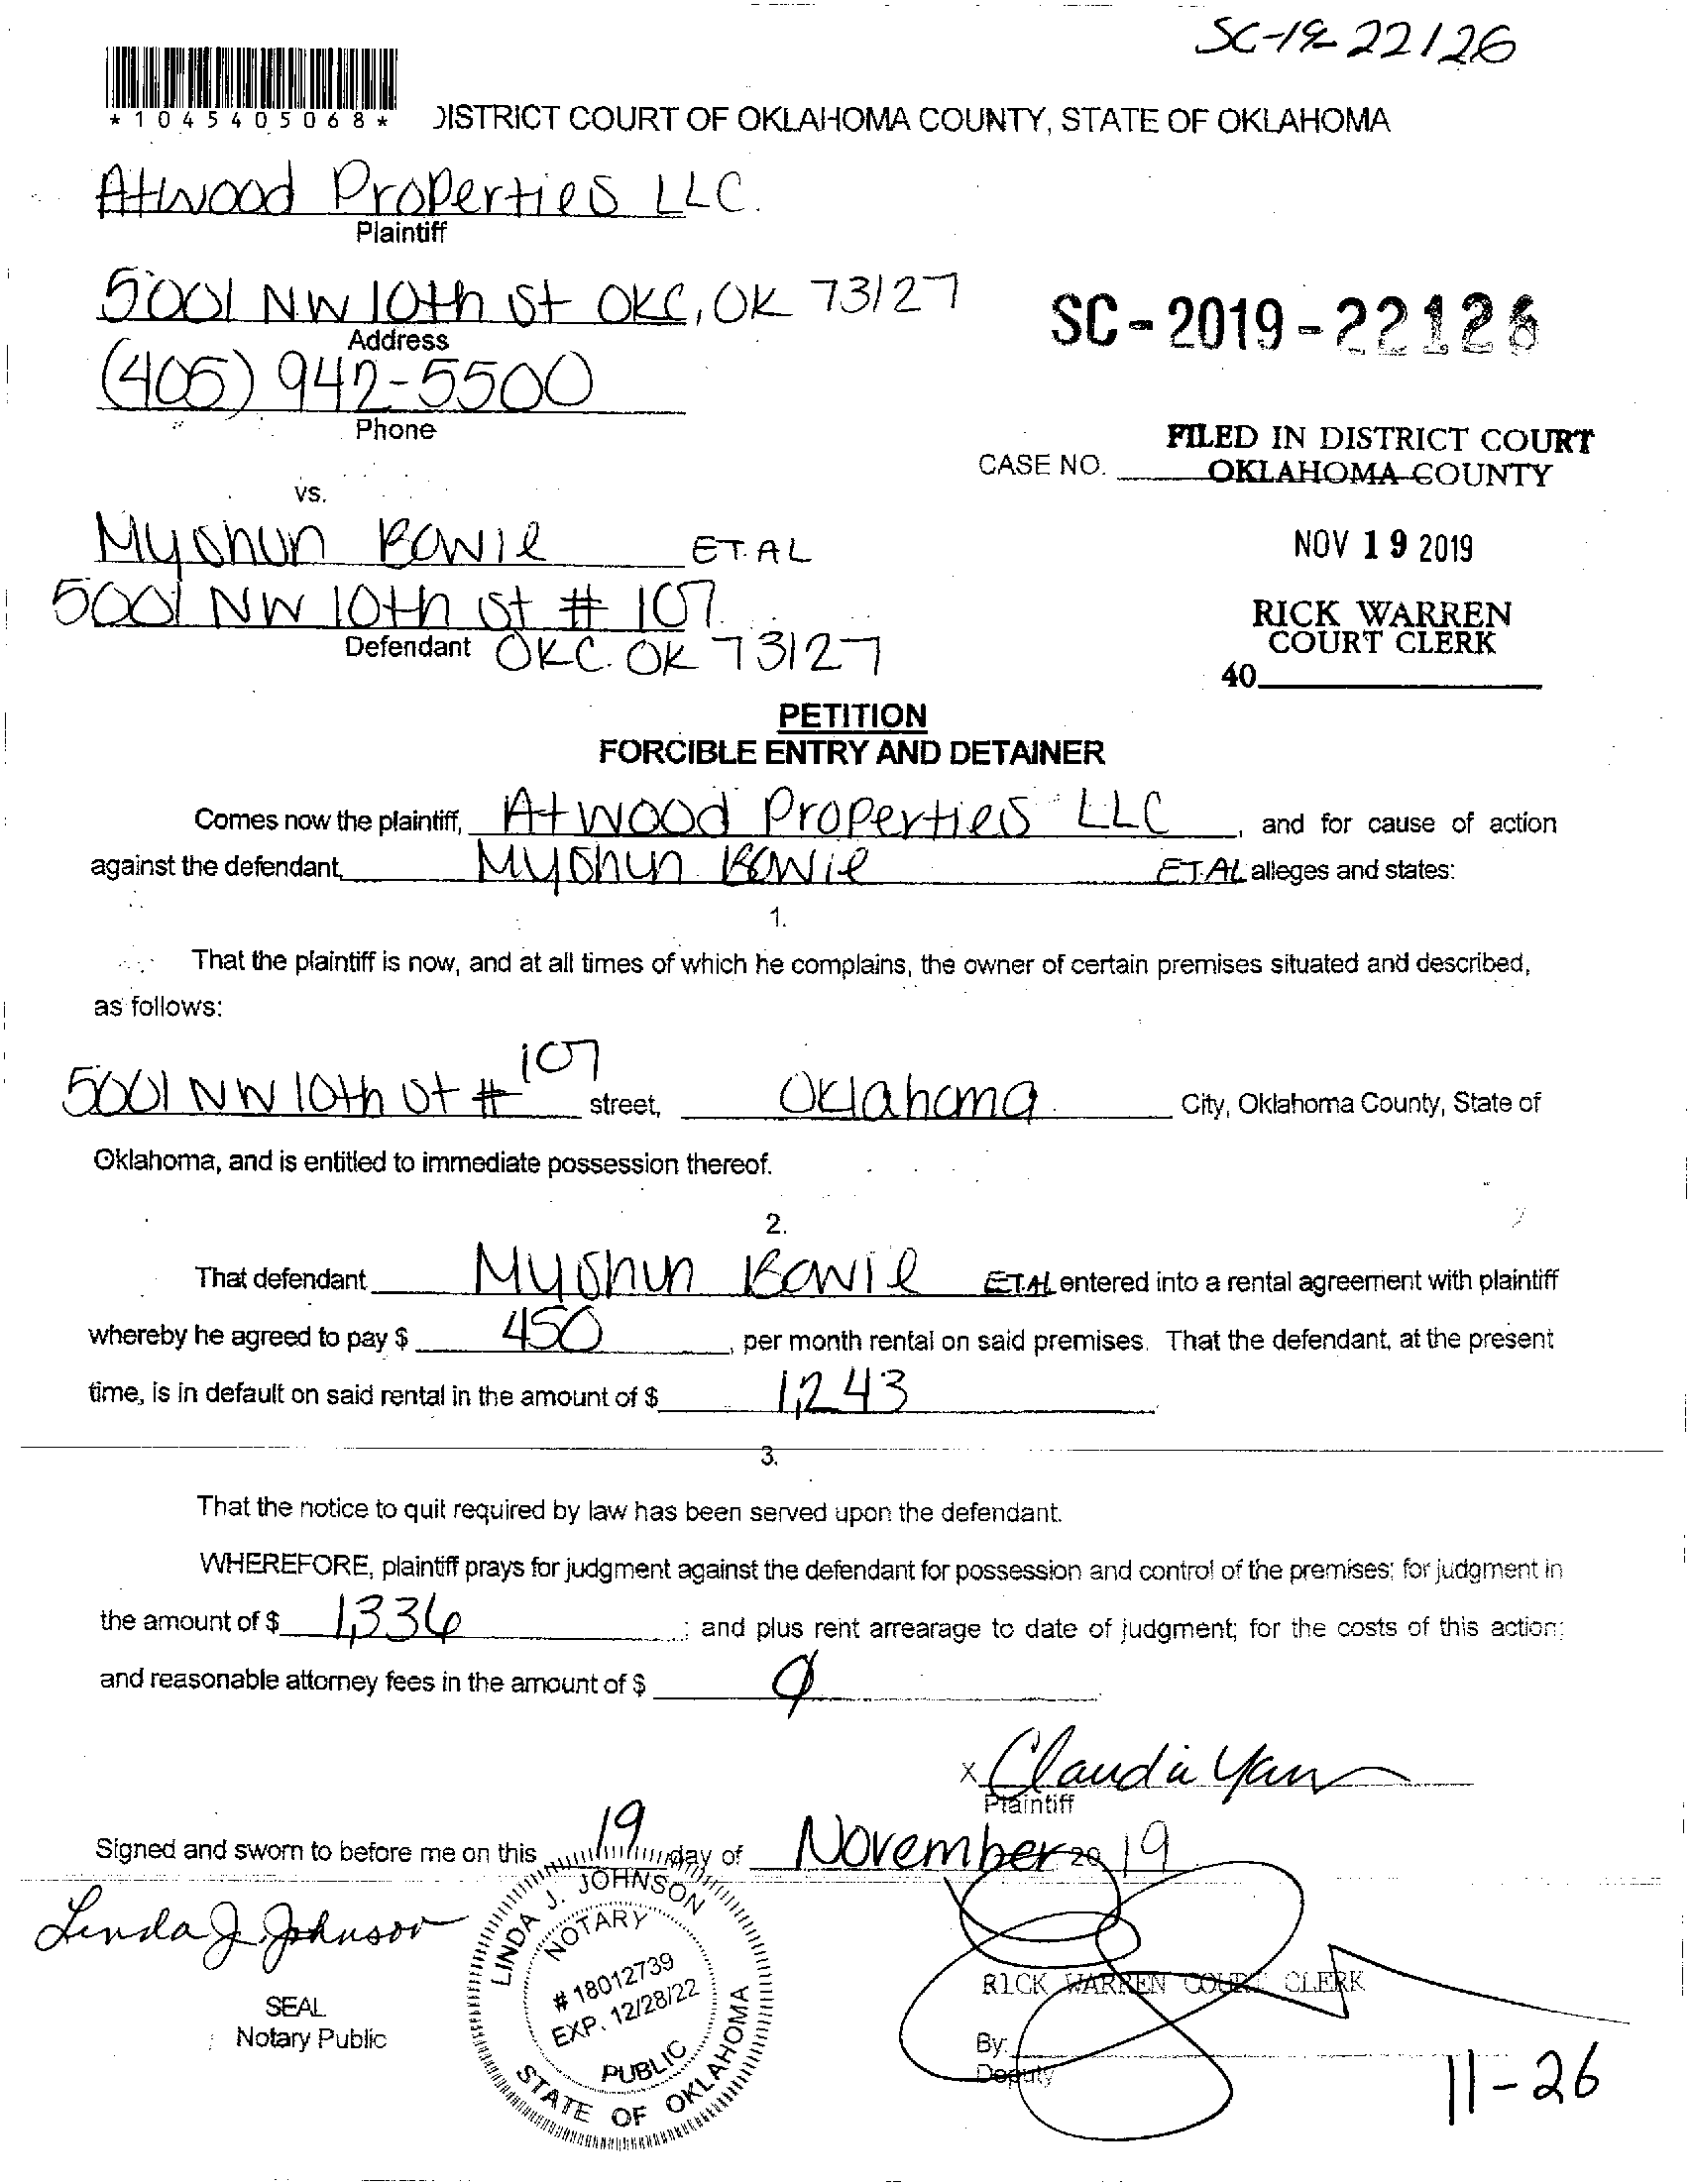 SC-19-22126
*1045405068*
DISTRICT COURT OF OKLAHOMA COUNTY, STATE OF OKLAHOMA
Atwood Properties LLC.
Plaintiff
5001 NW 10th St OKC, OK 73127
Address
SC-2019-22126
(405) 942-5500
Phone
FILED IN DISTRICT COURT
CASE NO. OKLAHOMA COUNTY
vs.
Myshun Bowie ET. AL
NOV 19 2019
5001 NW 10th St # 107
RICK WARREN
Defendant OKC. OK 73127
COURT CLERK
40
PETITION
FORCIBLE ENTRY AND DETAINER
Comes now the plaintiff, Atwood Properties LLC, and for cause of action
against the defendant, Myshun Bowie ET.AL alleges and states:
1.
That the plaintiff is now, and at all times of which he complains, the owner of certain premises situated and described,
as follows:
5001 NW 10th St # 107 street, Oklahoma City, Oklahoma County, State of
Oklahoma, and is entitled to immediate possession thereof.
2.
That defendant Myshun Bowie ET.AL entered into a rental agreement with plaintiff
whereby he agreed to pay $ 450, per month rental on said premises. That the defendant, at the present
time, is in default on said rental in the amount of $ 1,243
3.
That the notice to quit required by law has been served upon the defendant.
WHEREFORE, plaintiff prays for judgment against the defendant for possession and control of the premises; for judgment in
the amount of $ 1,336; and plus rent arrearage to date of judgment; for the costs of this action;
and reasonable attorney fees in the amount of $ 0
x Claudia Yan
Plaintiff
Signed and sworn to before me on this 19 day of November 20 19
Linda J Johnson
LINDA J. JOHNSON
NOTARY
# 18012739
EXP. 12/28/22
PUBLIC
STATE OF OKLAHOMA
SEAL
Notary Public
RICK WARREN COURT CLERK
By:
Deputy
11-26